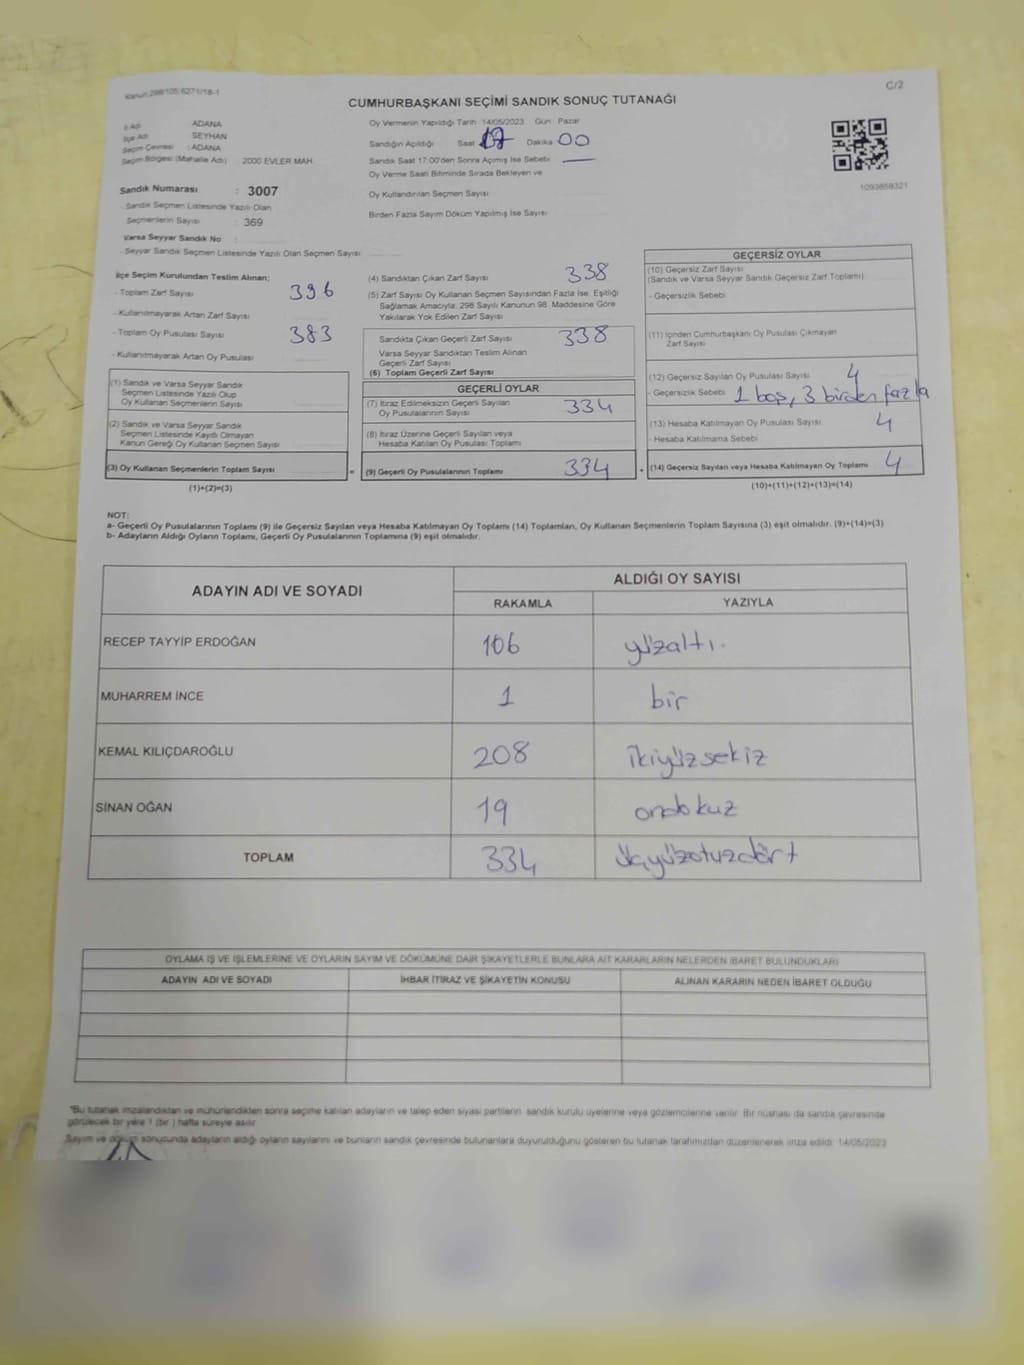 Kanun:298/105;6271/18-1
C/2
CUMHURBAŞKANI SEÇİMİ SANDIK SONUÇ TUTANAĞI
İl Adı : ADANA
İlçe Adı : SEYHAN
Seçim Çevresi : ADANA
Seçim Bölgesi (Mahalle Adı) 2000 EVLER MAH.
Sandık Numarası : 3007
- Sandık Seçmen Listesinde Yazılı Olan
Seçmenlerin Sayısı : 369
Varsa Seyyar Sandık No :
- Seyyar Sandık Seçmen Listesinde Yazılı Olan Seçmen Sayısı
Oy Vermenin Yapıldığı Tarih : 14/05/2023 Gün : Pazar
Sandığın Açıldığı Saat 17 Dakika 00
Sandık Saat 17:00'den Sonra Açımış İse Sebebi
Oy Verme Saati Bitiminde Sırada Bekleyen ve
Oy Kullandırılan Seçmen Sayısı
Birden Fazla Sayım Döküm Yapılmış İse Sayısı
1093858321
İlçe Seçim Kurulundan Teslim Alınan;
- Toplam Zarf Sayısı 396
- Kullanılmayarak Artan Zarf Sayısı
- Toplam Oy Pusulası Sayısı 383
- Kullanılmayarak Artan Oy Pusulası
(1) Sandık ve Varsa Seyyar Sandık
Seçmen Listesinde Yazılı Olup
Oy Kullanan Seçmenlerin Sayısı
(2) Sandık ve Varsa Seyyar Sandık
Seçmen Listesinde Kaydı Olmayan
Kanun Gereği Oy Kullanan Seçmen Sayısı
(3) Oy Kullanan Seçmenlerin Toplam Sayısı =
(1)+(2)=(3)
(4) Sandıktan Çıkan Zarf Sayısı 338
(5) Zarf Sayısı Oy Kullanan Seçmen Sayısından Fazla İse, Eşitliği
Sağlamak Amacıyla, 298 Sayılı Kanunun 98. Maddesine Göre
Yakılarak Yok Edilen Zarf Sayısı
Sandıkta Çıkan Geçerli Zarf Sayısı 338
Varsa Seyyar Sandıktan Teslim Alınan
Geçerli Zarf Sayısı
(6) Toplam Geçerli Zarf Sayısı
GEÇERLİ OYLAR
(7) İtiraz Edilmeksizin Geçerli Sayılan
Oy Pusulalarının Sayısı 334
(8) İtiraz Üzerine Geçerli Sayılan veya
Hesaba Katılan Oy Pusulaları Toplamı
(9) Geçerli Oy Pusulalarının Toplamı 334 +
GEÇERSİZ OYLAR
(10) Geçersiz Zarf Sayısı
(Sandık ve Varsa Seyyar Sandık Geçersiz Zarf Toplamı)
- Geçersizlik Sebebi
(11) İçinden Cumhurbaşkanı Oy Pusulası Çıkmayan
Zarf Sayısı
(12) Geçersiz Sayılan Oy Pusulası Sayısı 4
- Geçersizlik Sebebi 1 boş, 3 birden fazla
(13) Hesaba Katılmayan Oy Pusulası Sayısı 4
- Hesaba Katılmama Sebebi
(14) Geçersiz Sayılan veya Hesaba Katılmayan Oy Toplamı 4
(10)+(11)+(12)+(13)=(14)
NOT:
a- Geçerli Oy Pusulalarının Toplamı (9) ile Geçersiz Sayılan veya Hesaba Katılmayan Oy Toplamı (14) Toplamları, Oy Kullanan Seçmenlerin Toplam Sayısına (3) eşit olmalıdır. (9)+(14)=(3)
b- Adayların Aldığı Oyların Toplamı, Geçerli Oy Pusulalarının Toplamına (9) eşit olmalıdır.
ADAYIN ADI VE SOYADI ALDIĞI OY SAYISI
RAKAMLA YAZIYLA
RECEP TAYYİP ERDOĞAN 106 yüzaltı.
MUHARREM İNCE 1 bir
KEMAL KILIÇDAROĞLU 208 ikiyüzsekiz
SİNAN OĞAN 19 ondokuz
TOPLAM 334 üçyüzotuzdört
OYLAMA İŞ VE İŞLEMLERİNE VE OYLARIN SAYIM VE DÖKÜMÜNE DAİR ŞİKAYETLERLE BUNLARA AİT KARARLARIN NELERDEN İBARET BULUNDUKLARI
ADAYIN ADI VE SOYADI İHBAR İTİRAZ VE ŞİKAYETİN KONUSU ALINAN KARARIN NEDEN İBARET OLDUĞU
*Bu tutanak imzalandıktan ve mühürlendikten sonra seçime katılan adayların ve talep eden siyasi partilerin sandık kurulu üyelerine veya gözlemcilerine verilir. Bir nüshası da sandık çevresinde
görülecek bir yere 1 (bir ) hafta süreyle asılır.
Sayım ve döküm sonucunda adayların aldığı oyların sayılarını ve bunların sandık çevresinde bulunanlara duyurulduğunu gösteren bu tutanak tarafımızdan düzenlenerek imza edildi. 14/05/2023